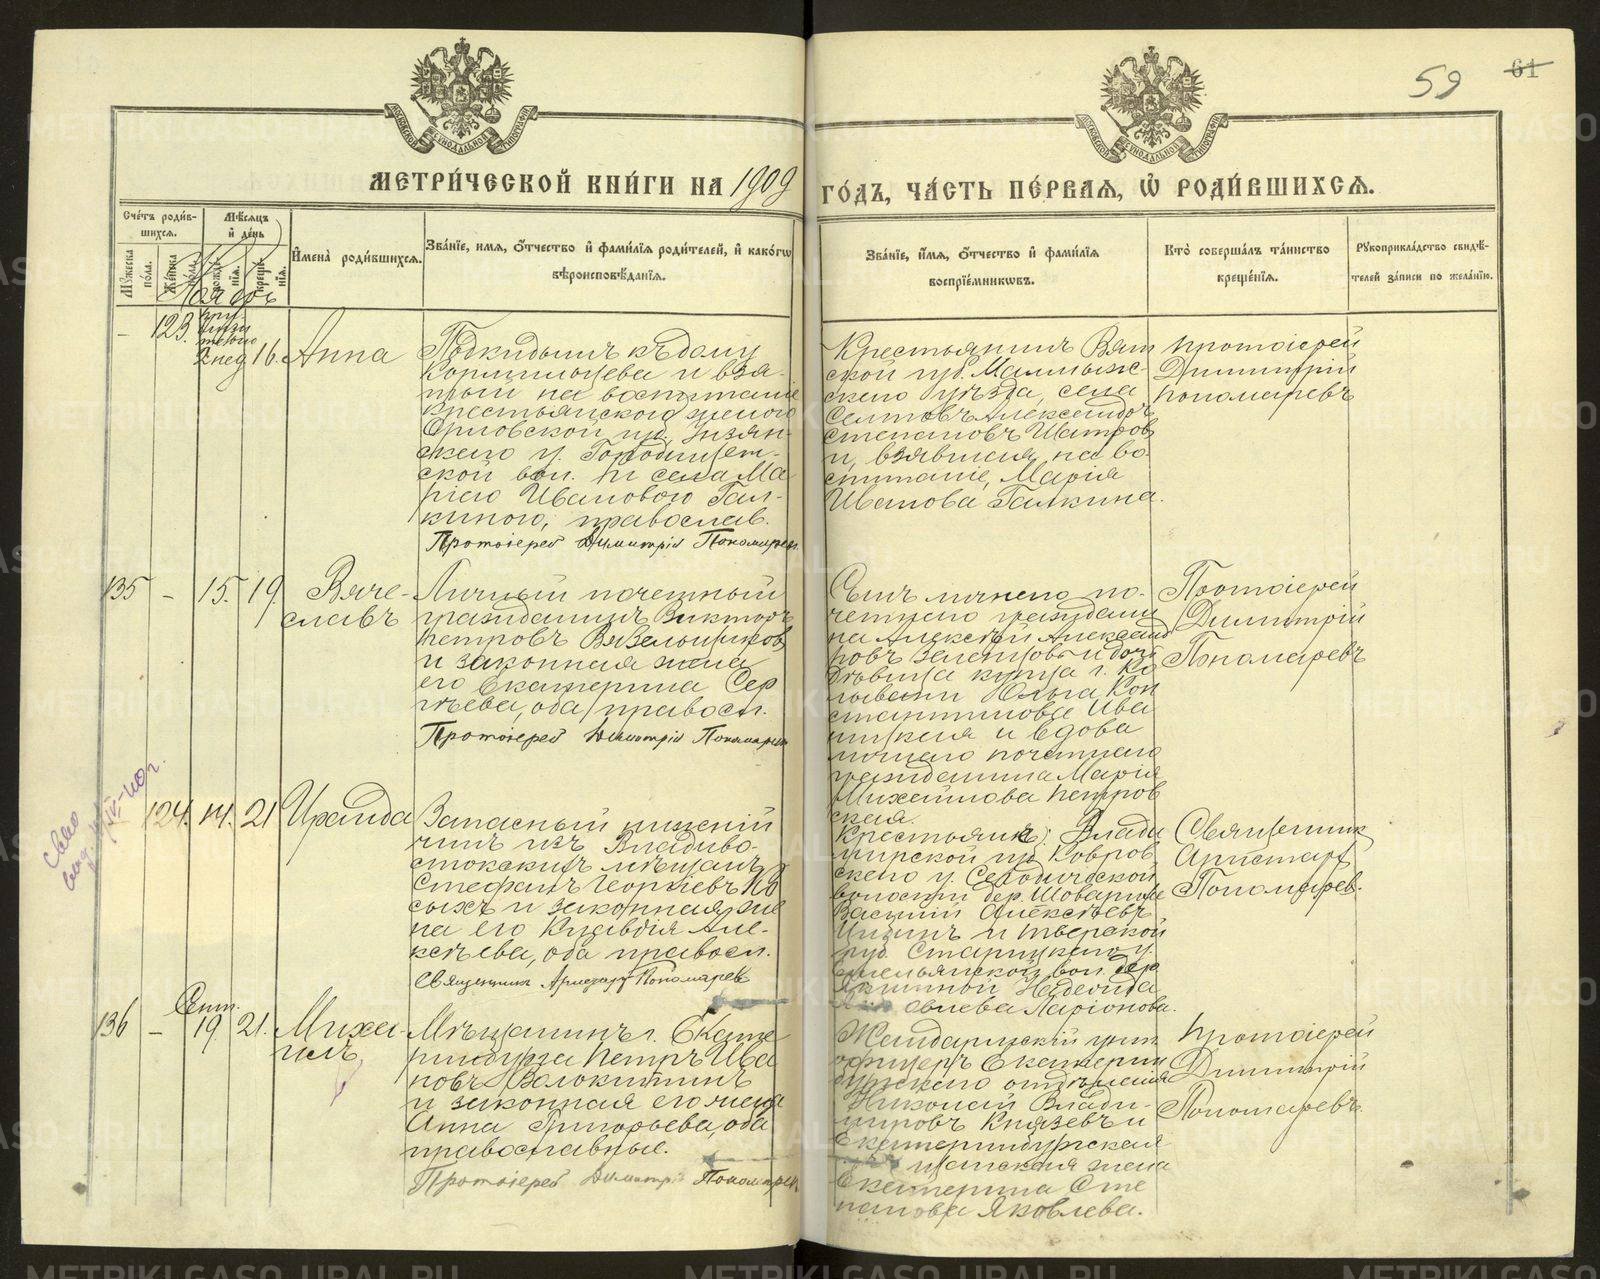 59
61
МЕТРИ́ЧЕСКОЙ КНИ́ГИ НА 1909
ГО́ДЪ, ЧА́СТЬ ПЕ́РВАЯ, Ѽ РОДИ́ВШИХСЯ.
Сче́тъ роди́в-
шихся.
Мѣ́сяцъ
и де́нь
Мꙋжеска
по́ла.
Же́нска
креще́-
нїя.
Имена̀ роди́вшихся.
Зва́нїе, имя, о́тчество и фами́лїя роди́телей, и како́гѡ
вѣроисповѣ́данїя.
Зва́нїе, и́мя, о́тчество и фами́лїя
воспрїе́мникѡвъ.
Кто̀ соверша́лъ та́инство
креще́нїя.
Рꙋкоприкла́дство свидѣ́-
телей за́писи по жела́нїю.
Ноябрь
–
123.
2 нед
16.
Анна
Подкидышъ къ дому
Кормильцева и взя-
тый на воспитаніе
крестьянскою женою
Орловской губ.
скаго у. Городищет-
ской вол. и села Ма-
ріею Ивановою Гал-
киною, православ.
Протоіерей Димитрій Пономаревъ
Крестьянинъ Вят
ской губ. Малмыж-
скаго уѣзда, села
Селтовъ Александръ
Степановъ Шатров
и взявшая на во
спитаніе, Марія
Иванова Галкина.
Протоіерей
Димитрій
Пономаревъ
135
–
15.
19.
Вяче-
славъ
Личный почетный
гражданинъ Викторъ
Петровъ Вязельщиковъ
и законная жена
его Екатерина Сер
гѣева, оба правосл.
Протоіерей Димитрій Пономаревъ
Сынъ личнаго по-
четнаго граждани
на Алексѣй Александ
ровъ Зеленцовъ и дочь
дѣвица купца г. Ко
лывани Юлія Кон
стантиновна Ива
ницкая и вдова
личнаго почетнаго
гражданина Марія
Михайлова Петров
ская.
Протоіерей
Димитрій
Пономаревъ
124.
14.
21
Ираида
Запасный нижній
чинъ изъ Владиво-
стокскихъ мѣщанъ
Стефанъ Георгіевъ Ко
сыхъ и законная же
на его Клавдія Але-
ксѣева, оба правосл.
Священникъ Аристархъ Пономаревъ
Крестьяне: Влади
мирской губ. Ковров
скаго у.
волости дер.
Василій Алексѣевъ
и Тверской
губ. Старицкаго у.
Емельяновской вол. дер.
Надежда
Ларіонова.
Священник
Аристархъ
Пономарев.
136
–
Сент.
19.
21.
Миха-
илъ
Мѣщанинъ г. Екате
ринбурга Петръ Ива
новъ Волокитинъ
и законная его жена
Анна Григорьева, оба
православные.
Протоіерей Димитрій Пономарев
Жандармскій унт
офицеръ Екатерин
бургскаго отдѣленія
Николай Влади-
мировъ Князевъ и
Екатеринбургская
мѣщанская жена
Екатерина Сте
панова Яковлева.
Протоіерей
Димитрій
Пономаревъ